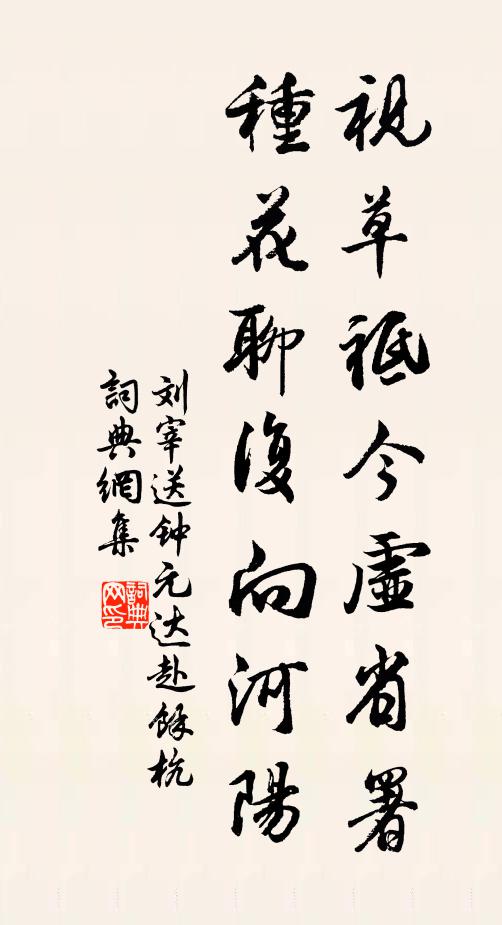 視草祗今虛省署
種花聊復向河陽
刘宰送钟元达赴餘杭
詞典網集
詞典網印